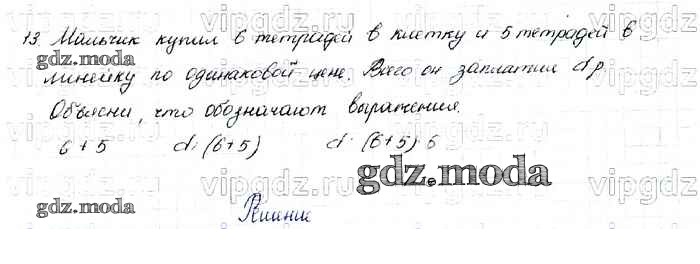 13. Мальчик купил 6 тетрадей в клетку и 5 тетрадей в
линейку по одинаковой цене. Всего он заплатил d р.
Объясни, что обозначают выражения.
6 + 5 d : (6+5) d : (6+5) · 6
gdz.moda
gdz.moda
gdz.moda
vipgdz.ru
vipgdz.ru
vipgdz.ru